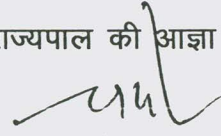 राज्यपाल की आज्ञा